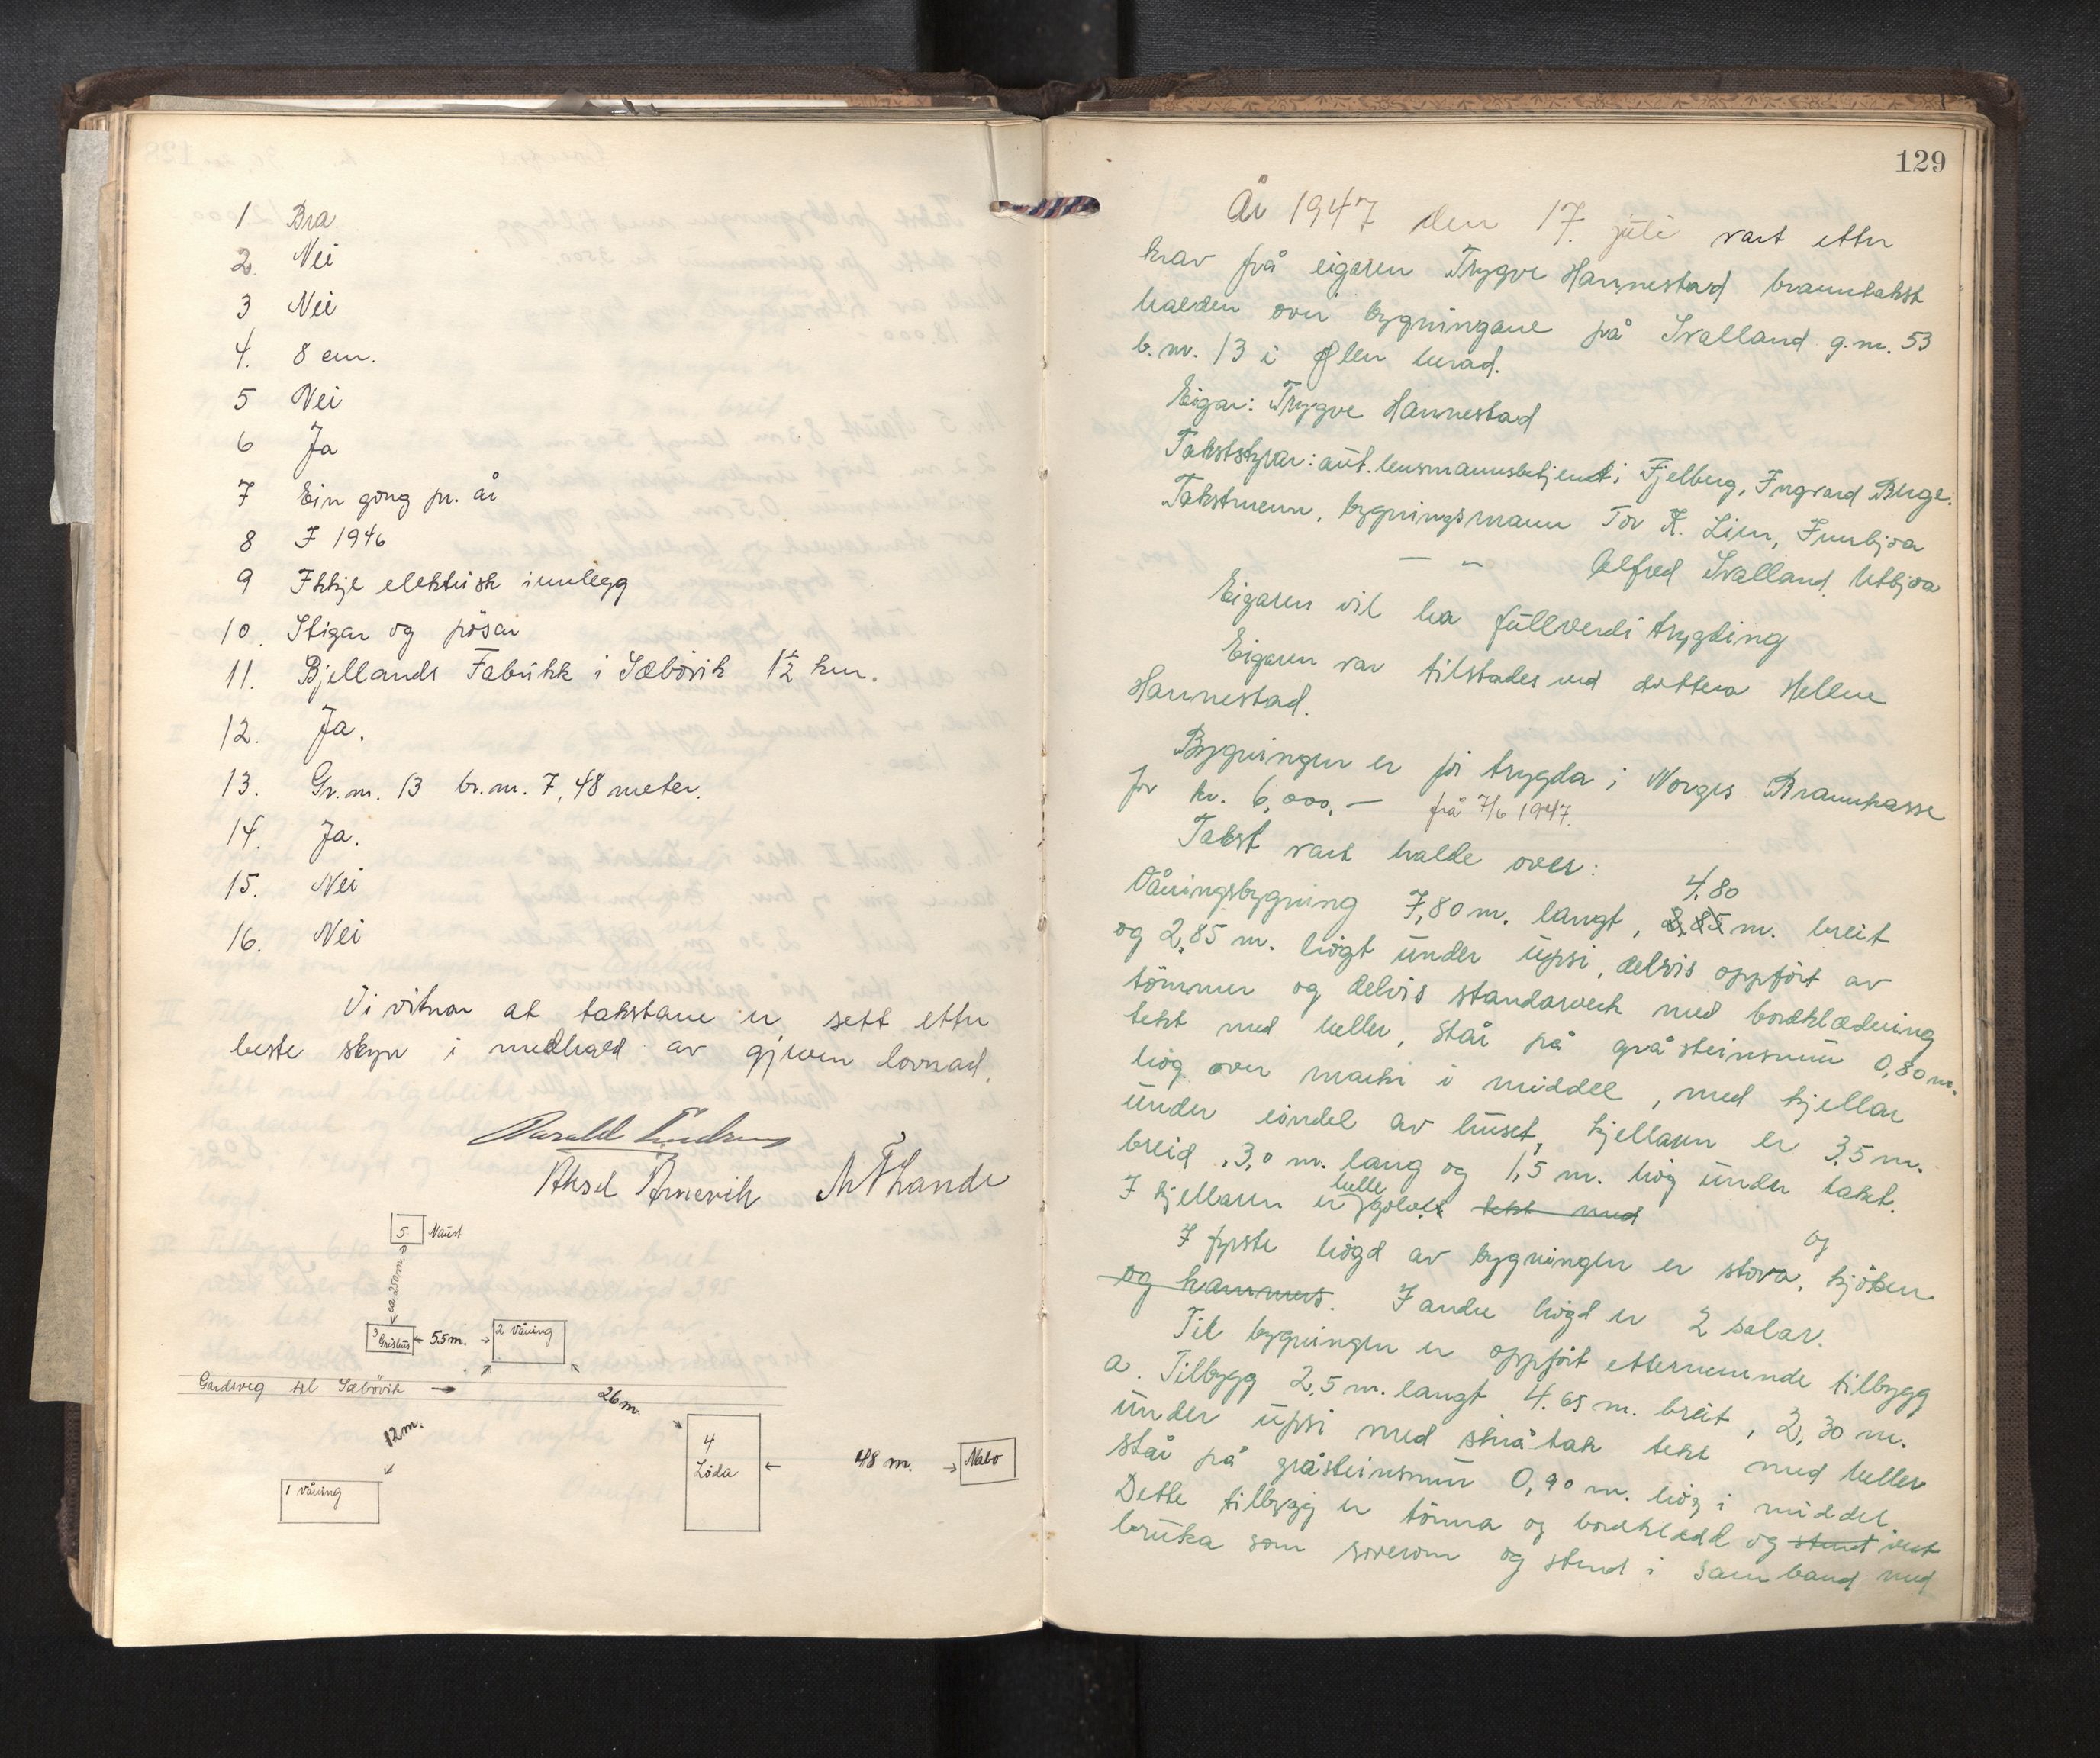 1 Bra
2. Nei
3 Nei
4. 8 cm.
5 Nei
6 Ja
7 Ein gong pr. år
8 I 1946
9 Ikkje elektrisk innlegg
10. Stigar og pösar
11. Bjellands Fabrikk i Sæbövik 1½ km.
12. Ja.
13. Gr.nr. 13 br.nr. 7, 48 meter.
14. Ja.
15. Nei
16. Nei
Vi vitnar at takstane er sett etter
beste skyn i medhald av gjeven lovnad.
Aksel Arnevik
5 Naust
ca. 250 m.
3 Grishus
5.5 m.
2 Våning
Gardsveg til Sæbövik
26 m.
12 m.
4 Löda
48 m.
Nabo
1 Våning
129
År 1947 den 17. juli vart etter
krav frå eigaren Trygve Hannestad branntakst
halden over bygningane på Svalland g.nr. 53
b.nr. 13 i Ølen herad.
Eigar: Trygve Hannestad
Takststyrar: aut. lensmannsbetjent i Fjelberg, Ingvard Berge.
Takstmenn, bygningsmann Tor K. Lien, Innbjoa
— " — Alfred Svalland, Utbjoa
Eigaren vil ha fullverdi trygding
Eigaren var tilstades ved dottera Hellene
Hannestad.
Bygningen er för trygda i Norges Brannkasse
for kr. 6.000,— frå 7/6 1947.
Takst vart halde over:
4.80
Våningsbygning 7,80 m. langt, 2,85 m. breit
og 2,85 m. högt under upsi, delvis oppfört av
tömmer og delvis standarverk med bordklædning
tekt med heller, står på gråsteinsmur 0,80 m.
hög over marki i middel, med kjellar
under eindel av huset, kjellaren er 3,5 m.
breid, 3,0 m. lang og 1,5 m. hög under taket.
I kjellaren er helle golvet tekt med
I fyrste högd av bygningen er stova, og kjöken
og kammers. I andre högd er 2 salar.
Til bygningen er oppfört etternemnde tilbygg
a. Tilbygg 2,5 m. langt 4.65 m. breit, 2,30 m.
under upsi med skråtak tekt med heller
står på gråsteinsmur 0,90 m. hög i middel.
Dette tilbygg er tömra og bordkledd og stend vert
bruka som soverom og stend i samband med